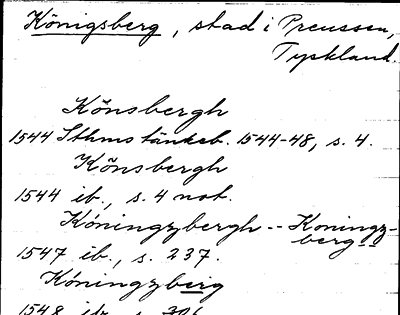 Königsberg, stad i Preussen,
Tyskland.
Könsbergh
1544 Sthms tänkeb. 1544-48, s. 4.
Könsbergh
1544 ib., s. 4 not.
Köningzbergh -- Koningz-
berg
1547 ib., s. 237.
Köningzberig
1548 ib. s. 306